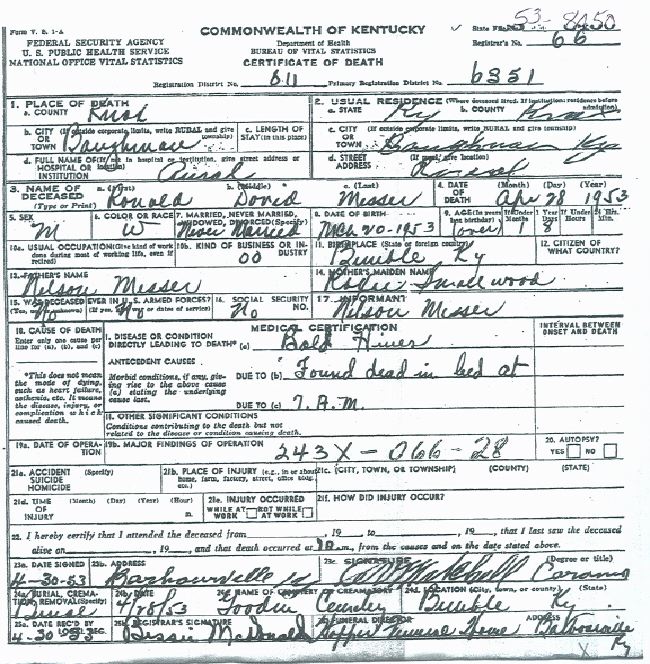 Form V. S. 1-A
FEDERAL SECURITY AGENCY
U. S. PUBLIC HEALTH SERVICE
NATIONAL OFFICE VITAL STATISTICS
COMMONWEALTH OF KENTUCKY
Department of Health
BUREAU OF VITAL STATISTICS
CERTIFICATE OF DEATH
State File No. 53- 8050
Registrar's No. 66
Registration District No. 611 Primary Registration District No. 6351
1. PLACE OF DEATH
a. COUNTY Knox
2. USUAL RESIDENCE (Where deceased lived. If institution: residence before admission)
a. STATE Ky b. COUNTY Knox
b. CITY OR TOWN (If outside corporate limits, write RURAL and give township) Baughman
c. LENGTH OF STAY (in this place)
c. CITY OR TOWN (If outside corporate limits, write RURAL and give township) Baughman Ky
d. FULL NAME OF HOSPITAL OR INSTITUTION (If not in hospital or institution, give street address or location) Rural
d. STREET ADDRESS (If rural, give location) Rural
3. NAME OF DECEASED (Type or Print) a. (First) Ronald b. (Middle) David c. (Last) Messer
4. DATE OF DEATH (Month) (Day) (Year) Apr 28 1953
5. SEX M
6. COLOR OR RACE W
7. MARRIED, NEVER MARRIED, WIDOWED, DIVORCED (Specify) Never Married
8. DATE OF BIRTH Mch 20-1953
9. AGE (In years last birthday) (over) If Under 1 Year Months 1 Days 8 If Under 24 Hrs. Hours Min.
10a. USUAL OCCUPATION (Give kind of work done during most of working life, even if retired)
10b. KIND OF BUSINESS OR INDUSTRY 00
11. BIRTHPLACE (State or foreign country) Bimble Ky
12. CITIZEN OF WHAT COUNTRY?
13. FATHER'S NAME Nelson Messer
14. MOTHER'S MAIDEN NAME Smallwood
15. WAS DECEASED EVER IN U. S. ARMED FORCES? (Yes, no, or unknown) (If yes, give war or dates of service) No No
16. SOCIAL SECURITY NO. No
17. INFORMANT Nelson Messer
18. CAUSE OF DEATH
Enter only one cause per line for (a), (b), and (c)
MEDICAL CERTIFICATION
INTERVAL BETWEEN ONSET AND DEATH
I. DISEASE OR CONDITION DIRECTLY LEADING TO DEATH* (a) Bold Hives
*This does not mean the mode of dying, such as heart failure, asthenia, etc. It means the disease, injury, or complication which caused death.
ANTECEDENT CAUSES
Morbid conditions, if any, giving rise to the above cause (a) stating the underlying cause last.
DUE TO (b) Found dead in bed at
DUE TO (c) 7. A.M.
II. OTHER SIGNIFICANT CONDITIONS
Conditions contributing to the death but not related to the disease or condition causing death.
19a. DATE OF OPERATION
19b. MAJOR FINDINGS OF OPERATION 243X - 066 - 28
20. AUTOPSY? YES NO
21a. ACCIDENT SUICIDE HOMICIDE (Specify)
21b. PLACE OF INJURY (e.g., in or about home, farm, factory, street, office bldg., etc.)
21c. (CITY, TOWN, OR TOWNSHIP) (COUNTY) (STATE)
21d. TIME OF INJURY (Month) (Day) (Year) (Hour) m.
21e. INJURY OCCURRED WHILE AT WORK NOT WHILE AT WORK
21f. HOW DID INJURY OCCUR?
22. I hereby certify that I attended the deceased from , 19 to , 19 , that I last saw the deceased
alive on , 19 , and that death occurred at m., from the causes and on the date stated above.
23a. DATE SIGNED 4-30-53
23b. ADDRESS Barbourville Ky
23c. SIGNATURE (Degree or title) Coroner
24a. BURIAL, CREMATION, REMOVAL (Specify) Burial
24b. DATE 4/28/53
24c. NAME OF CEMETERY OR CREMATORY Goodin Cemetery
24d. LOCATION (City, town, or county) (State) Bimble Ky
25a. DATE REC'D BY LOCAL REG. 4-30 53
25b. REGISTRAR'S SIGNATURE Bessie McDonald
26. FUNERAL DIRECTOR Hopper Funeral Home ADDRESS Barbourville Ky
X